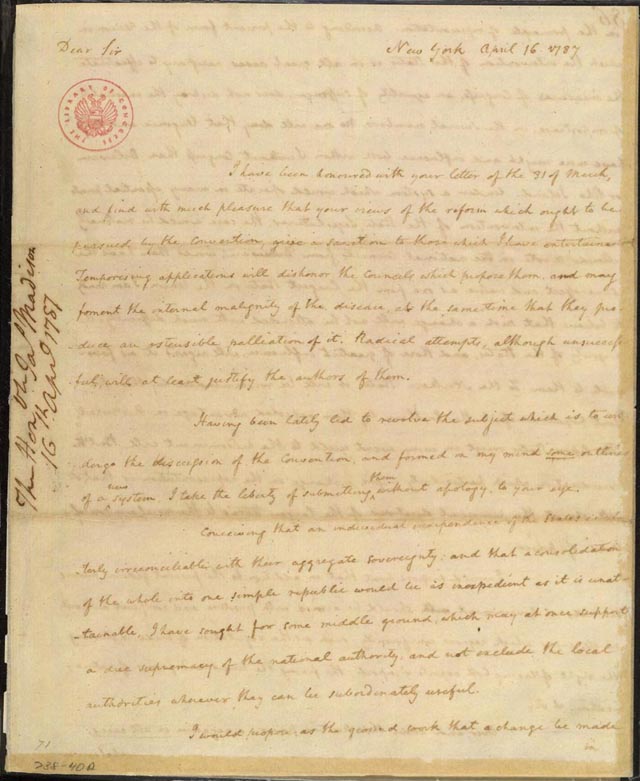 Dear Sir New York April 16 1787
THE LIBRARY OF CONGRESS
I have been honoured with your letter of the 31 of March,
and find with much pleasure that your views of the reform which ought to be
pursued by the Convention, give a sanction to those which I have entertained
Temporising applications will dishonor the Councils which propose them, and may
foment the internal malignity of the disease, at the same time that they pro-
duce an ostensible palliation of it. Radical attempts, although unsuccess-
ful, will at least justify the authors of them.
Having been lately led to revolve the subject which is to un-
dergo the discussion of the Convention, and formed in my mind some outlines
of a new system, I take the liberty of submitting them without apology, to your eye.
Conceiving that an individual independence of the States is
terly irreconcileable with their aggregate sovereignty; and that a consolidation
of the whole into one simple republic would be as inexpedient as it is unat-
-tainable, I have sought for some middle ground, which may at once support
a due supremacy of the national authority, and not exclude the local
authorities wherever they can be subordinately useful.
I would propose as the ground work that a change be made
in
The Honl. Jas. Madison
16th April 1787
71
288-40A